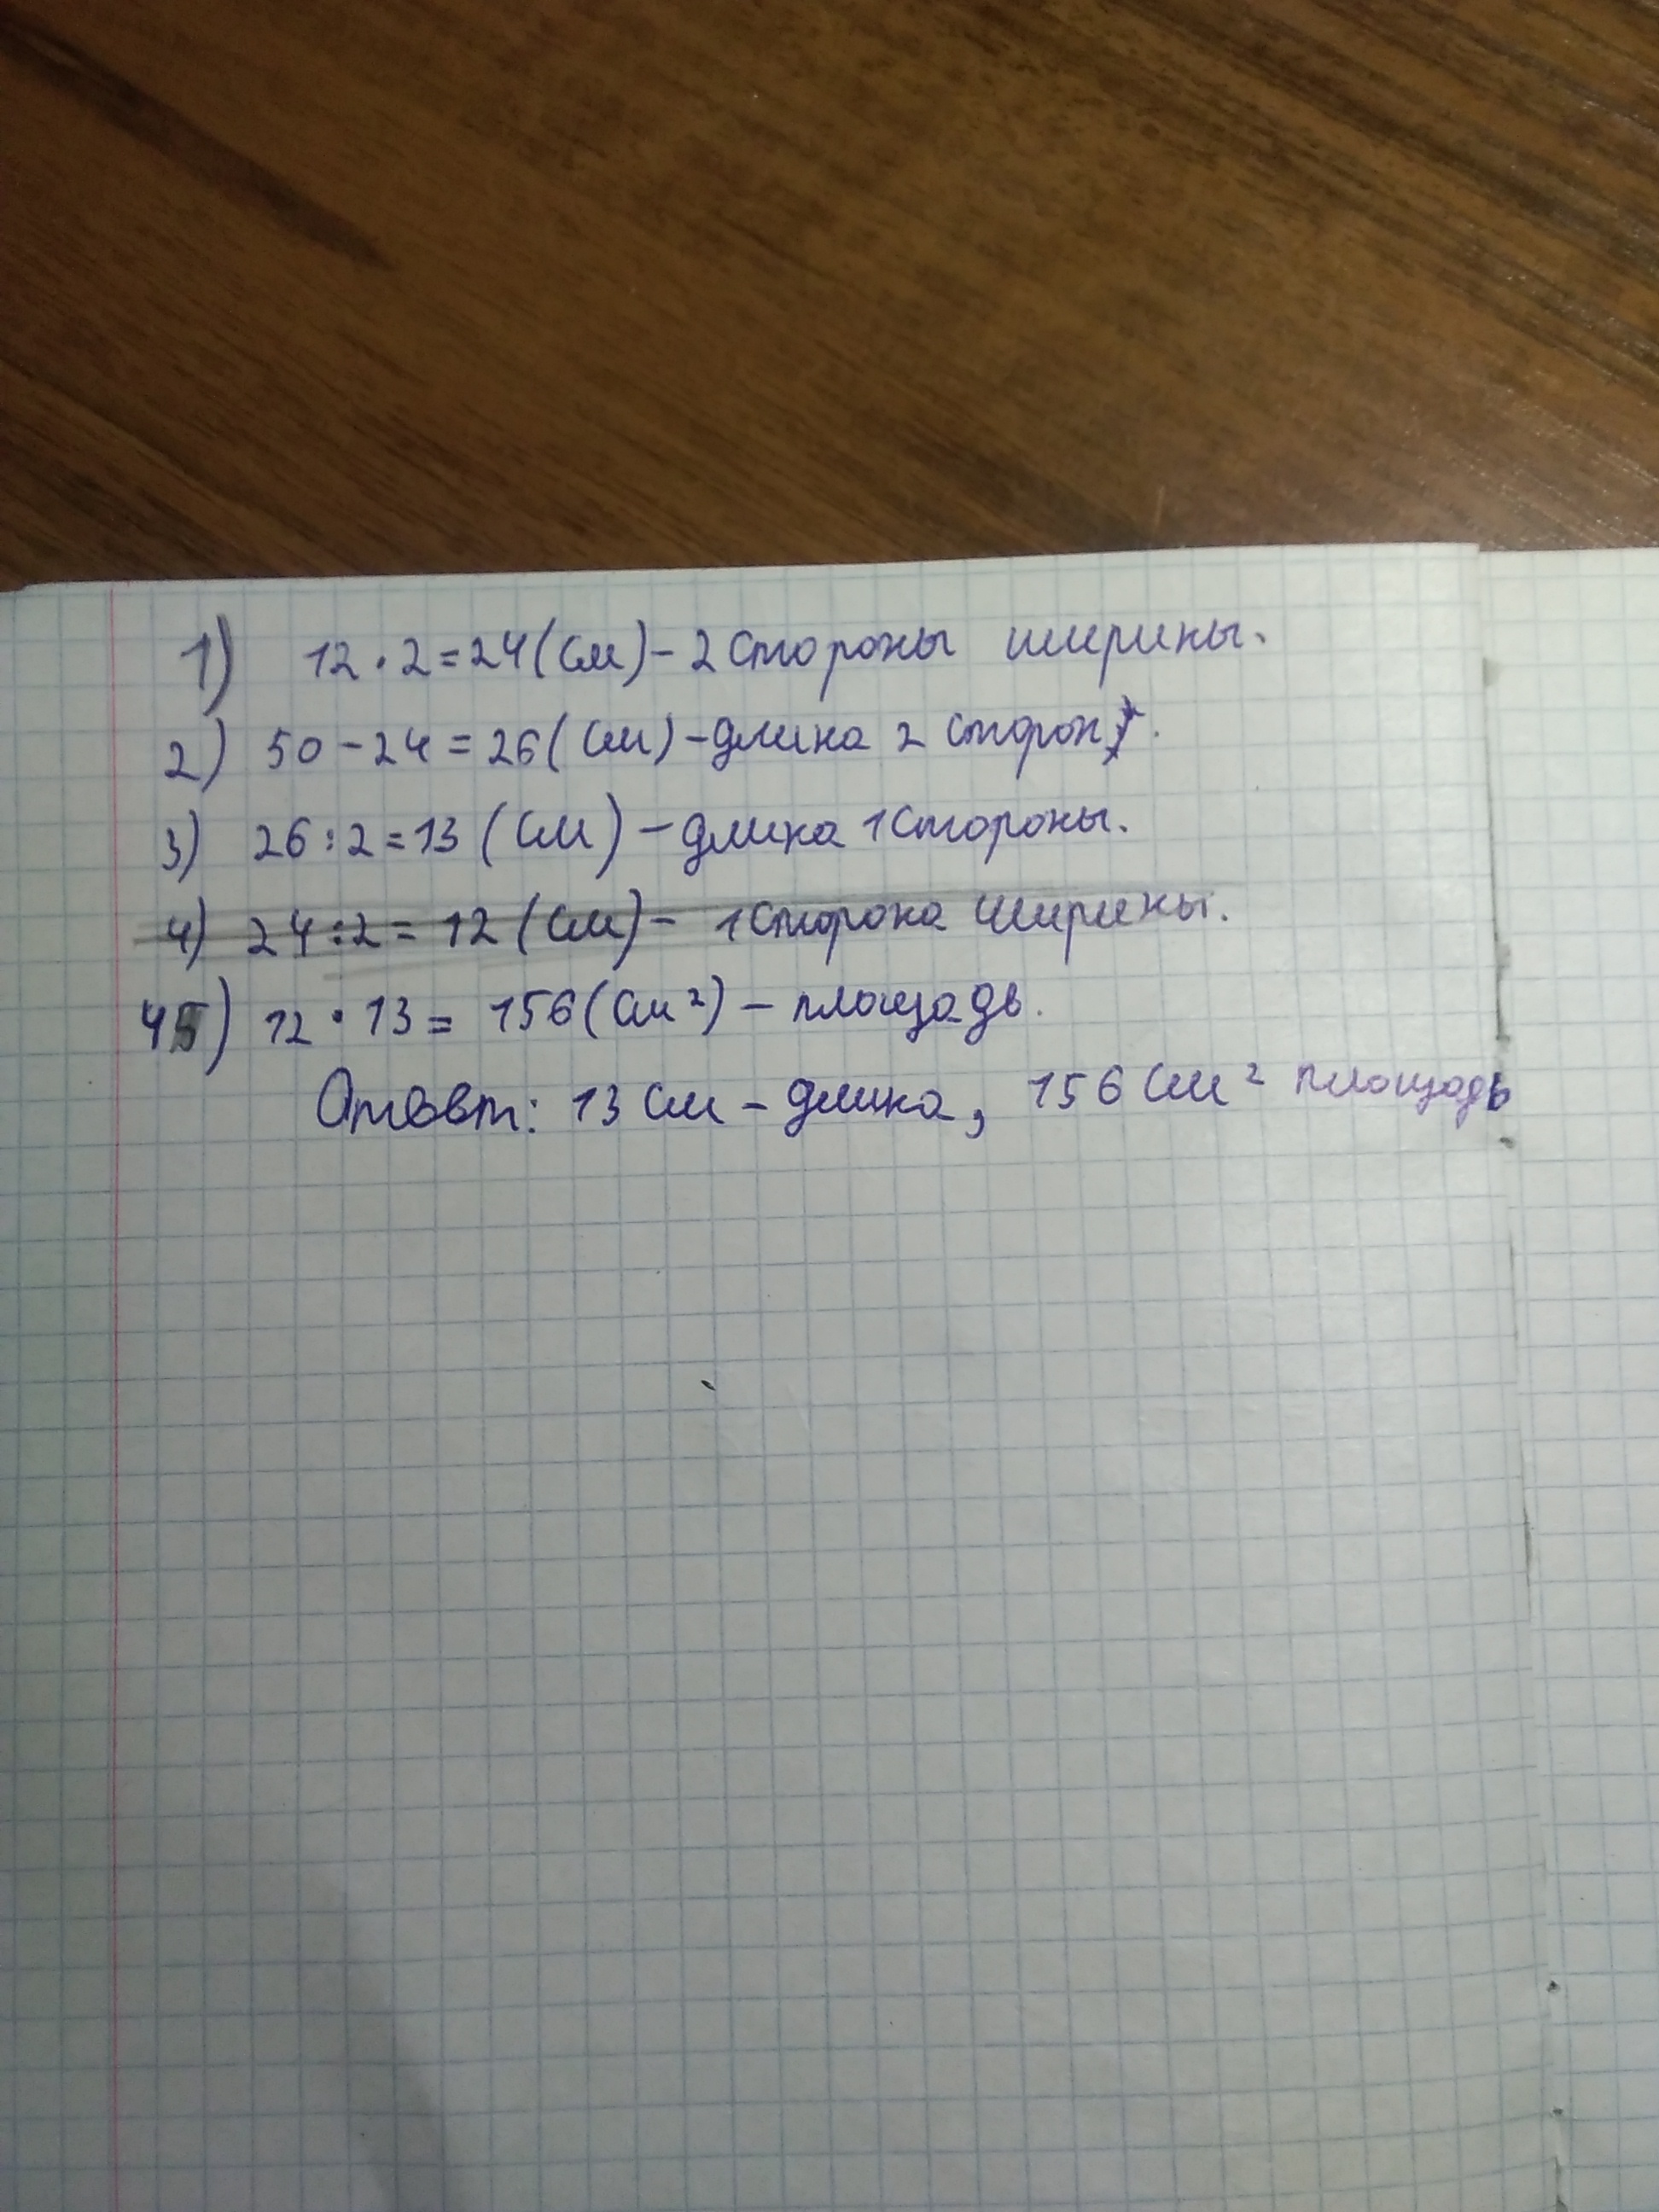 1) 12 · 2 = 24 (см) – 2 стороны ширины.
2) 50 – 24 = 26 (см) – длина 2 сторон.
3) 26 : 2 = 13 (см) – длина 1 стороны.
4) 24 : 2 = 12 (см) – 1 сторона ширины.
45) 12 · 13 = 156 (см²) – площадь.
Ответ: 13 см – длина, 156 см² площадь